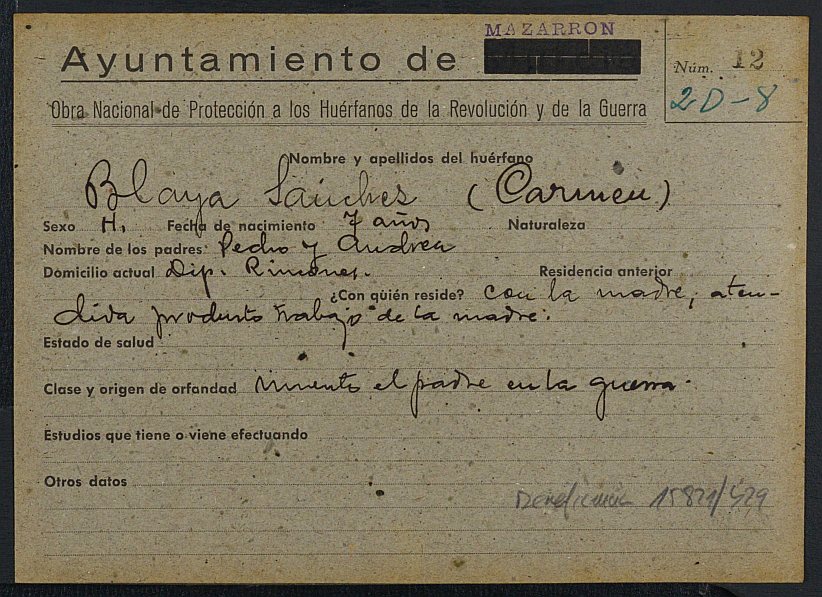 MAZARRON
Ayuntamiento de
Núm. 12
2D-8
Obra Nacional de Protección a los Huérfanos de la Revolución y de la Guerra
Nombre y apellidos del huérfano
Blaya Sánchez (Carmen)
Sexo H. Fecha de nacimiento 7 años Naturaleza
Nombre de los padres Pedro y Andrea
Domicilio actual Dip. Rincones. Residencia anterior
¿Con quién reside? Con la madre, aten-
dida producto trabajo de la madre.
Estado de salud
Clase y origen de orfandad Muerto el padre en la guerra.
Estudios que tiene o viene efectuando
Otros datos
15821/429